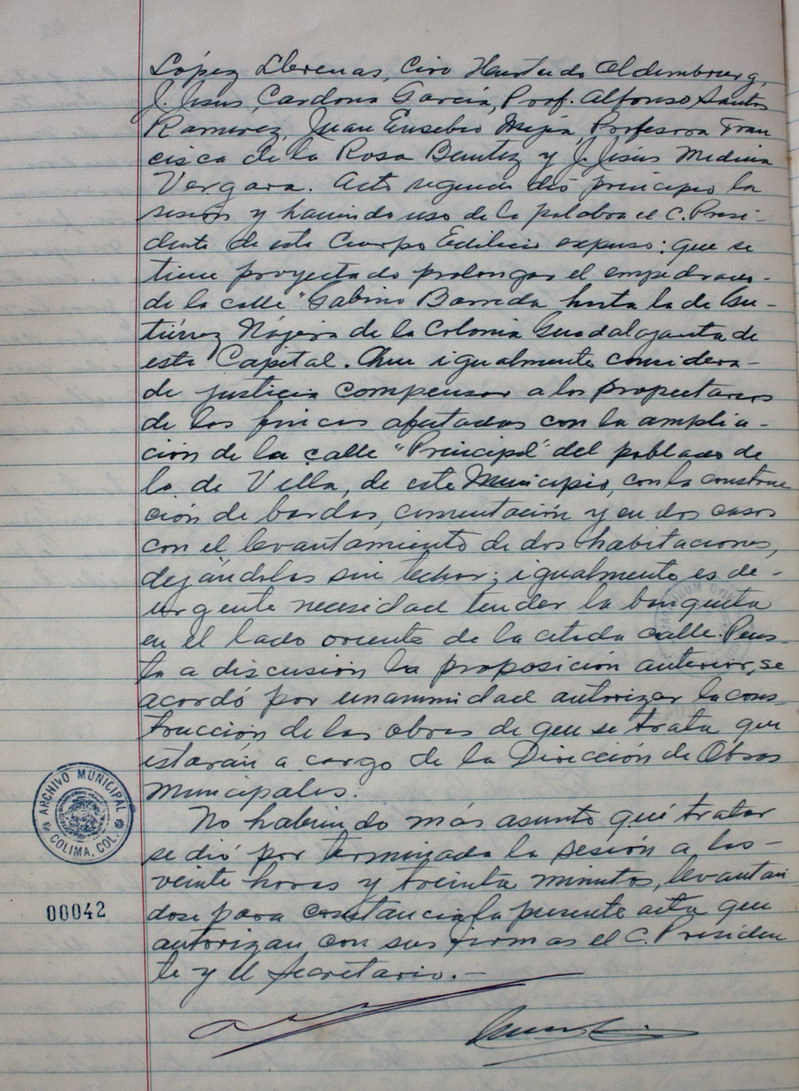 López Llerenas, Ciro Hurtado Aldembourg,
J. Jesus Cardona García, Prof. Alfonso Santos
Ramirez, Juan Eusebio Mejía, Profesora Fran
cisca de la Rosa Benitez y J. Jesús Medina
Vergara. Acto seguido dió principio la
sesión y haciendo uso de la palabra el C. Presi-
dente de este Cuerpo Edilicio expuso: que se
tiene proyectado prolongar el empedrado-
de la calle "Gabino Barreda hasta la de Gu-
tiérrez Nájera de la Colonia Guadalajarita de
esta Capital. Que igualmente considera-
de justicia compensar a los propietarios
de las fincas afectadas con la amplia-
ción de la calle "Principal" del poblado de
lo de Villa, de este Municipio, con la construc
ción de bardas, cimentación y en dos casos
con el levantamiento de dos habitaciones,
dejándolas sin techar; igualmente es de-
urgente necesidad tender la banqueta
en el lado oriente de la citada calle. Pues-
ta a discusión la proposición anterior, se
acordó por unanimidad autorizar la cons-
trucción de las obras de que se trata que
estarán a cargo de la Dirección de Obras
Municipales.
No habiendo más asunto qué tratar
se dió por terminada la sesión a las-
veinte horas y treinta minutos, levantan
dose para constancia la presente acta que
autorizan con sus firmas el C. Presiden
te y el Secretario.-
ARCHIVO MUNICIPAL
COLIMA, COL.
00042